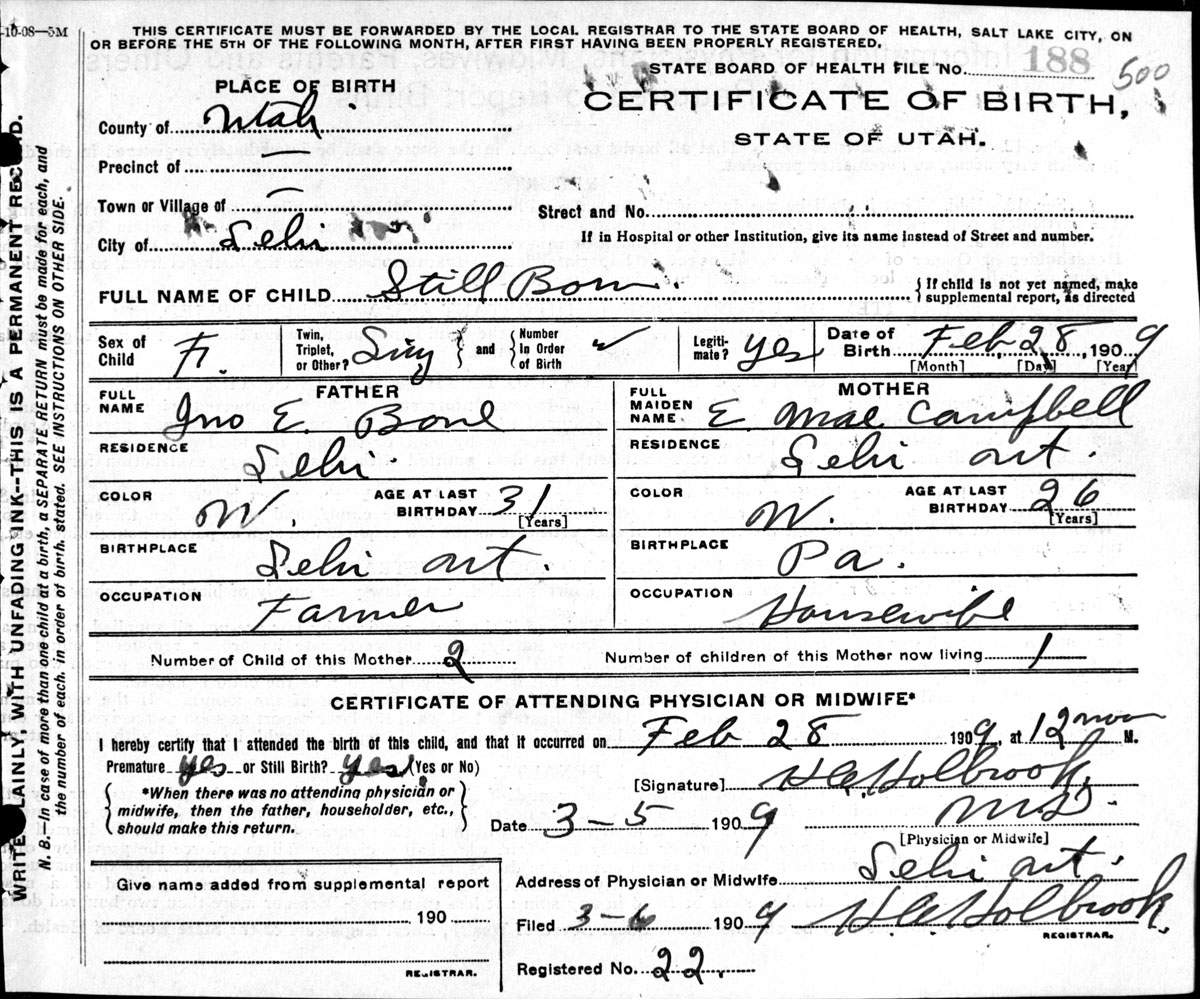 -10-08—5M
THIS CERTIFICATE MUST BE FORWARDED BY THE LOCAL REGISTRAR TO THE STATE BOARD OF HEALTH, SALT LAKE CITY, ON
OR BEFORE THE 5TH OF THE FOLLOWING MONTH, AFTER FIRST HAVING BEEN PROPERLY REGISTERED.
STATE BOARD OF HEALTH FILE No. 188 500
CERTIFICATE OF BIRTH,
STATE OF UTAH.
PLACE OF BIRTH
County of Utah
Precinct of —
Town or Village of —
Street and No.
City of Lehi
If in Hospital or other Institution, give its name instead of Street and number.
FULL NAME OF CHILD Still Born. { If child is not yet named, make
supplemental report, as directed
Sex of Child F. Twin, Triplet, or Other? Sing } and { Number In Order of Birth ✓ Legiti-mate? yes Date of Birth Feb. 28, 1909
[Month] [Day] [Year]
FATHER MOTHER
FULL NAME Jno E. Bone FULL MAIDEN NAME E. Mae Campbell
RESIDENCE Lehi. RESIDENCE Lehi ut.
COLOR W. AGE AT LAST BIRTHDAY 31 [Years] COLOR W. AGE AT LAST BIRTHDAY 26 [Years]
BIRTHPLACE Lehi ut. BIRTHPLACE Pa.
OCCUPATION Farmer OCCUPATION Housewife
Number of Child of this Mother 2 Number of children of this Mother now living 1
CERTIFICATE OF ATTENDING PHYSICIAN OR MIDWIFE*
I hereby certify that I attended the birth of this child, and that it occurred on Feb 28 1909, at 12 noon M.
Premature yes or Still Birth? yes (Yes or No)
[Signature] H. C. Holbrook,
{ *When there was no attending physician or
midwife, then the father, householder, etc.,
should make this return. }
Date 3-5 1909 MD.
[Physician or Midwife]
Give name added from supplemental report
190
REGISTRAR.
Address of Physician or Midwife Lehi ut.
Filed 3-6 1909 H. C. Holbrook.
REGISTRAR.
Registered No. 22.
WRITE PLAINLY WITH UNFADING INK--THIS IS A PERMANENT RECORD.
N. B.—In case of more than one child at a birth, a SEPARATE RETURN must be made for each, and
the number of each, in order of birth, stated. SEE INSTRUCTIONS ON OTHER SIDE.